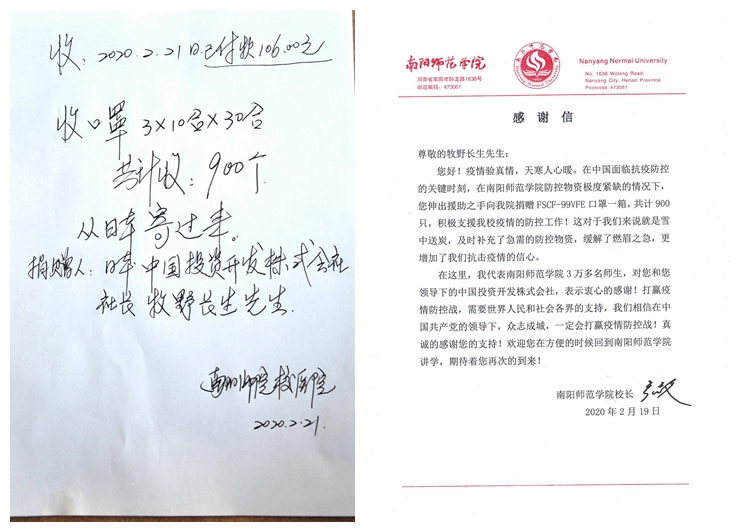 收：2020.2.21日已付款106.00元
收口罩 3×10合×30合
共计收：900个
从日本寄过来。
捐赠人：日本中国投资开发株式会社
社长 牧野长生先生.
南阳师院校医院
2020.2.21.
南阳师范学院
河南省南阳市卧龙路1638号
邮政编码：473061
Nanyang Normal University
No. 1638 Wolong Road
Nanyang City, Henan Province
Postcode:473061
感 谢 信
尊敬的牧野长生先生：
您好！疫情验真情，天寒人心暖。在中国面临抗疫防控
的关键时刻，在南阳师范学院防控物资极度紧缺的情况下，
您伸出援助之手向我院捐赠 FSCF-99VFE 口罩一箱，共计 900
只，积极支援我校疫情的防控工作！这对于我们来说就是雪
中送炭，及时补充了急需的防控物资，缓解了燃眉之急，更
增加了我们抗击疫情的信心。
在这里，我代表南阳师范学院 3 万多名师生，对您和您
领导下的中国投资开发株式会社，表示衷心的感谢！打赢疫
情防控战，需要世界人民和社会各界的支持，我们相信在中
国共产党的领导下，众志成城，一定会打赢疫情防控战！真
诚的感谢您的支持！欢迎您在方便的时候回到南阳师范学院
讲学，期待着您再次的到来！
南阳师范学院校长
2020 年 2 月 19 日